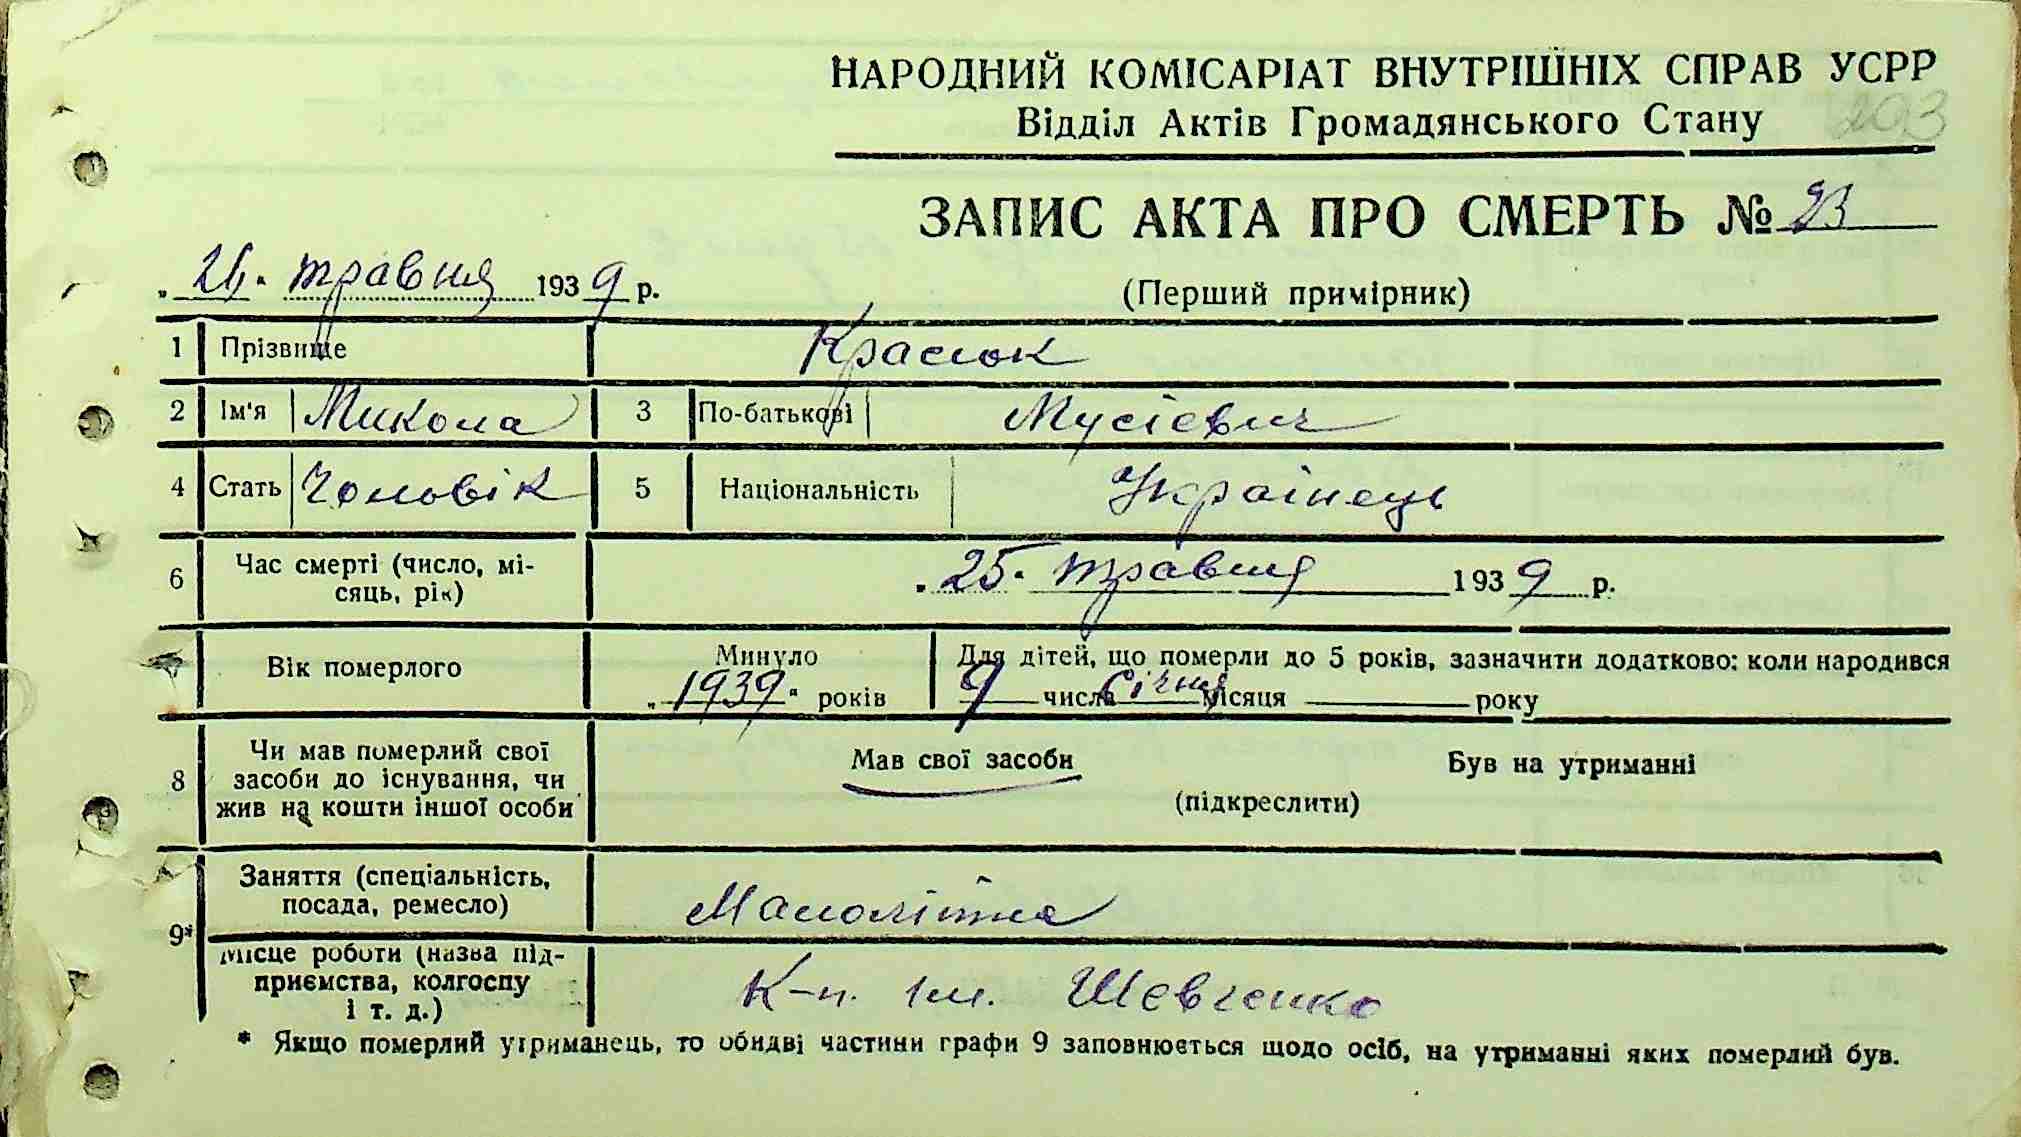 НАРОДНИЙ КОМІСАРІАТ ВНУТРІШНІХ СПРАВ УСРР
Відділ Актів Громадянського Стану
203
ЗАПИС АКТА ПРО СМЕРТЬ № 23
„26" травня 1939 р.
(Перший примірник)
1 Прізвище Красюк
2 Ім'я Микола 3 По-батькові Мусієвич
4 Стать Чоловік 5 Національність Українець
6 Час смерті (число, мі-
сяць, рік)
„25" травня 1939 р.
7 Вік померлого
Минуло
„1939" років
Для дітей, що померли до 5 років, зазначити додатково: коли народився
9 числа січня місяця року
8 Чи мав померлий свої
засоби до існування, чи
жив на кошти іншої особи
Мав свої засоби Був на утриманні
(підкреслити)
9* Заняття (спеціальність,
посада, ремесло)
Малолітнє
Місце роботи (назва під-
приємства, колгоспу
і т. д.)
К-п. ім. Шевченко
* Якщо померлий утриманець, то обидві частини графи 9 заповнюється щодо осіб, на утриманні яких померлий був.